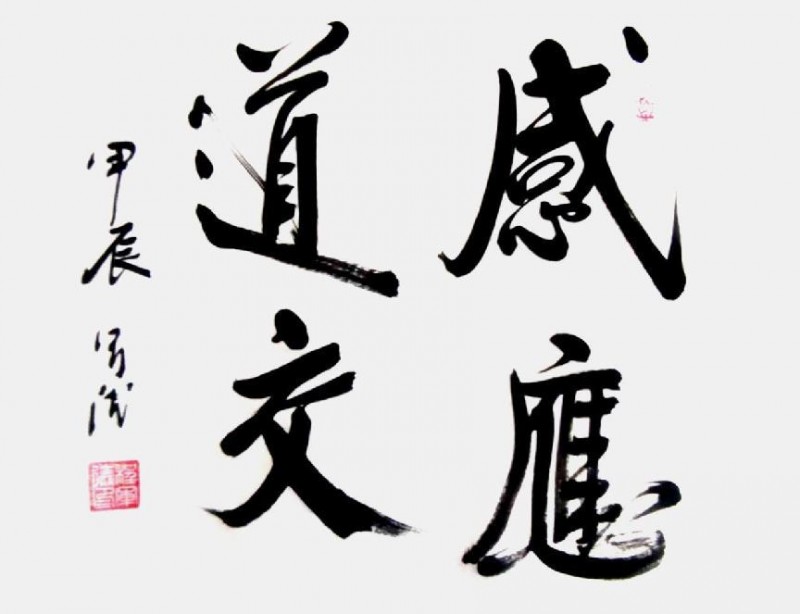 感應
道交
甲辰